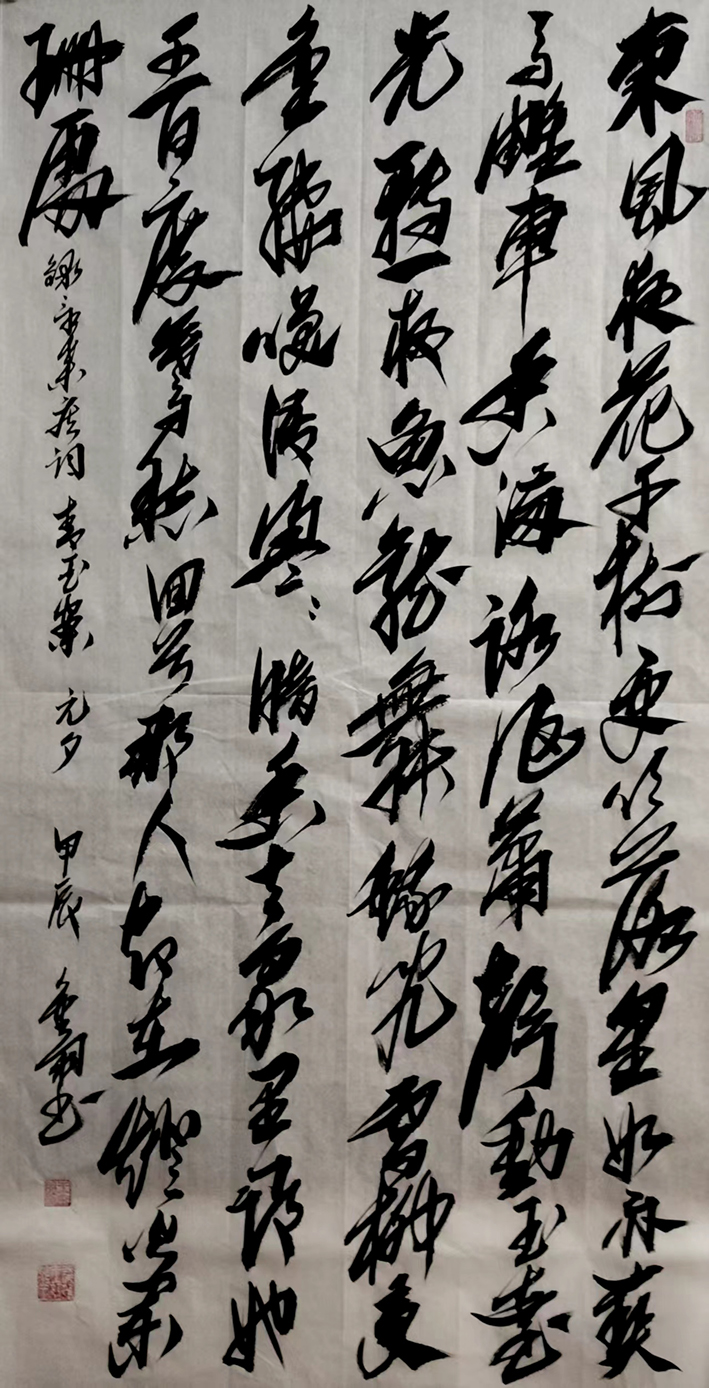 東風夜花千樹更吹落星如雨寶
馬雕車香滿路鳳簫聲動玉壺
光轉一夜魚龍舞蛾兒雪柳黃
金縷笑語盈盈暗香去眾里尋她
千百度驀然回首那人卻在燈火闌
珊處 錄辛棄疾詞 青玉案 元夕 甲辰 書